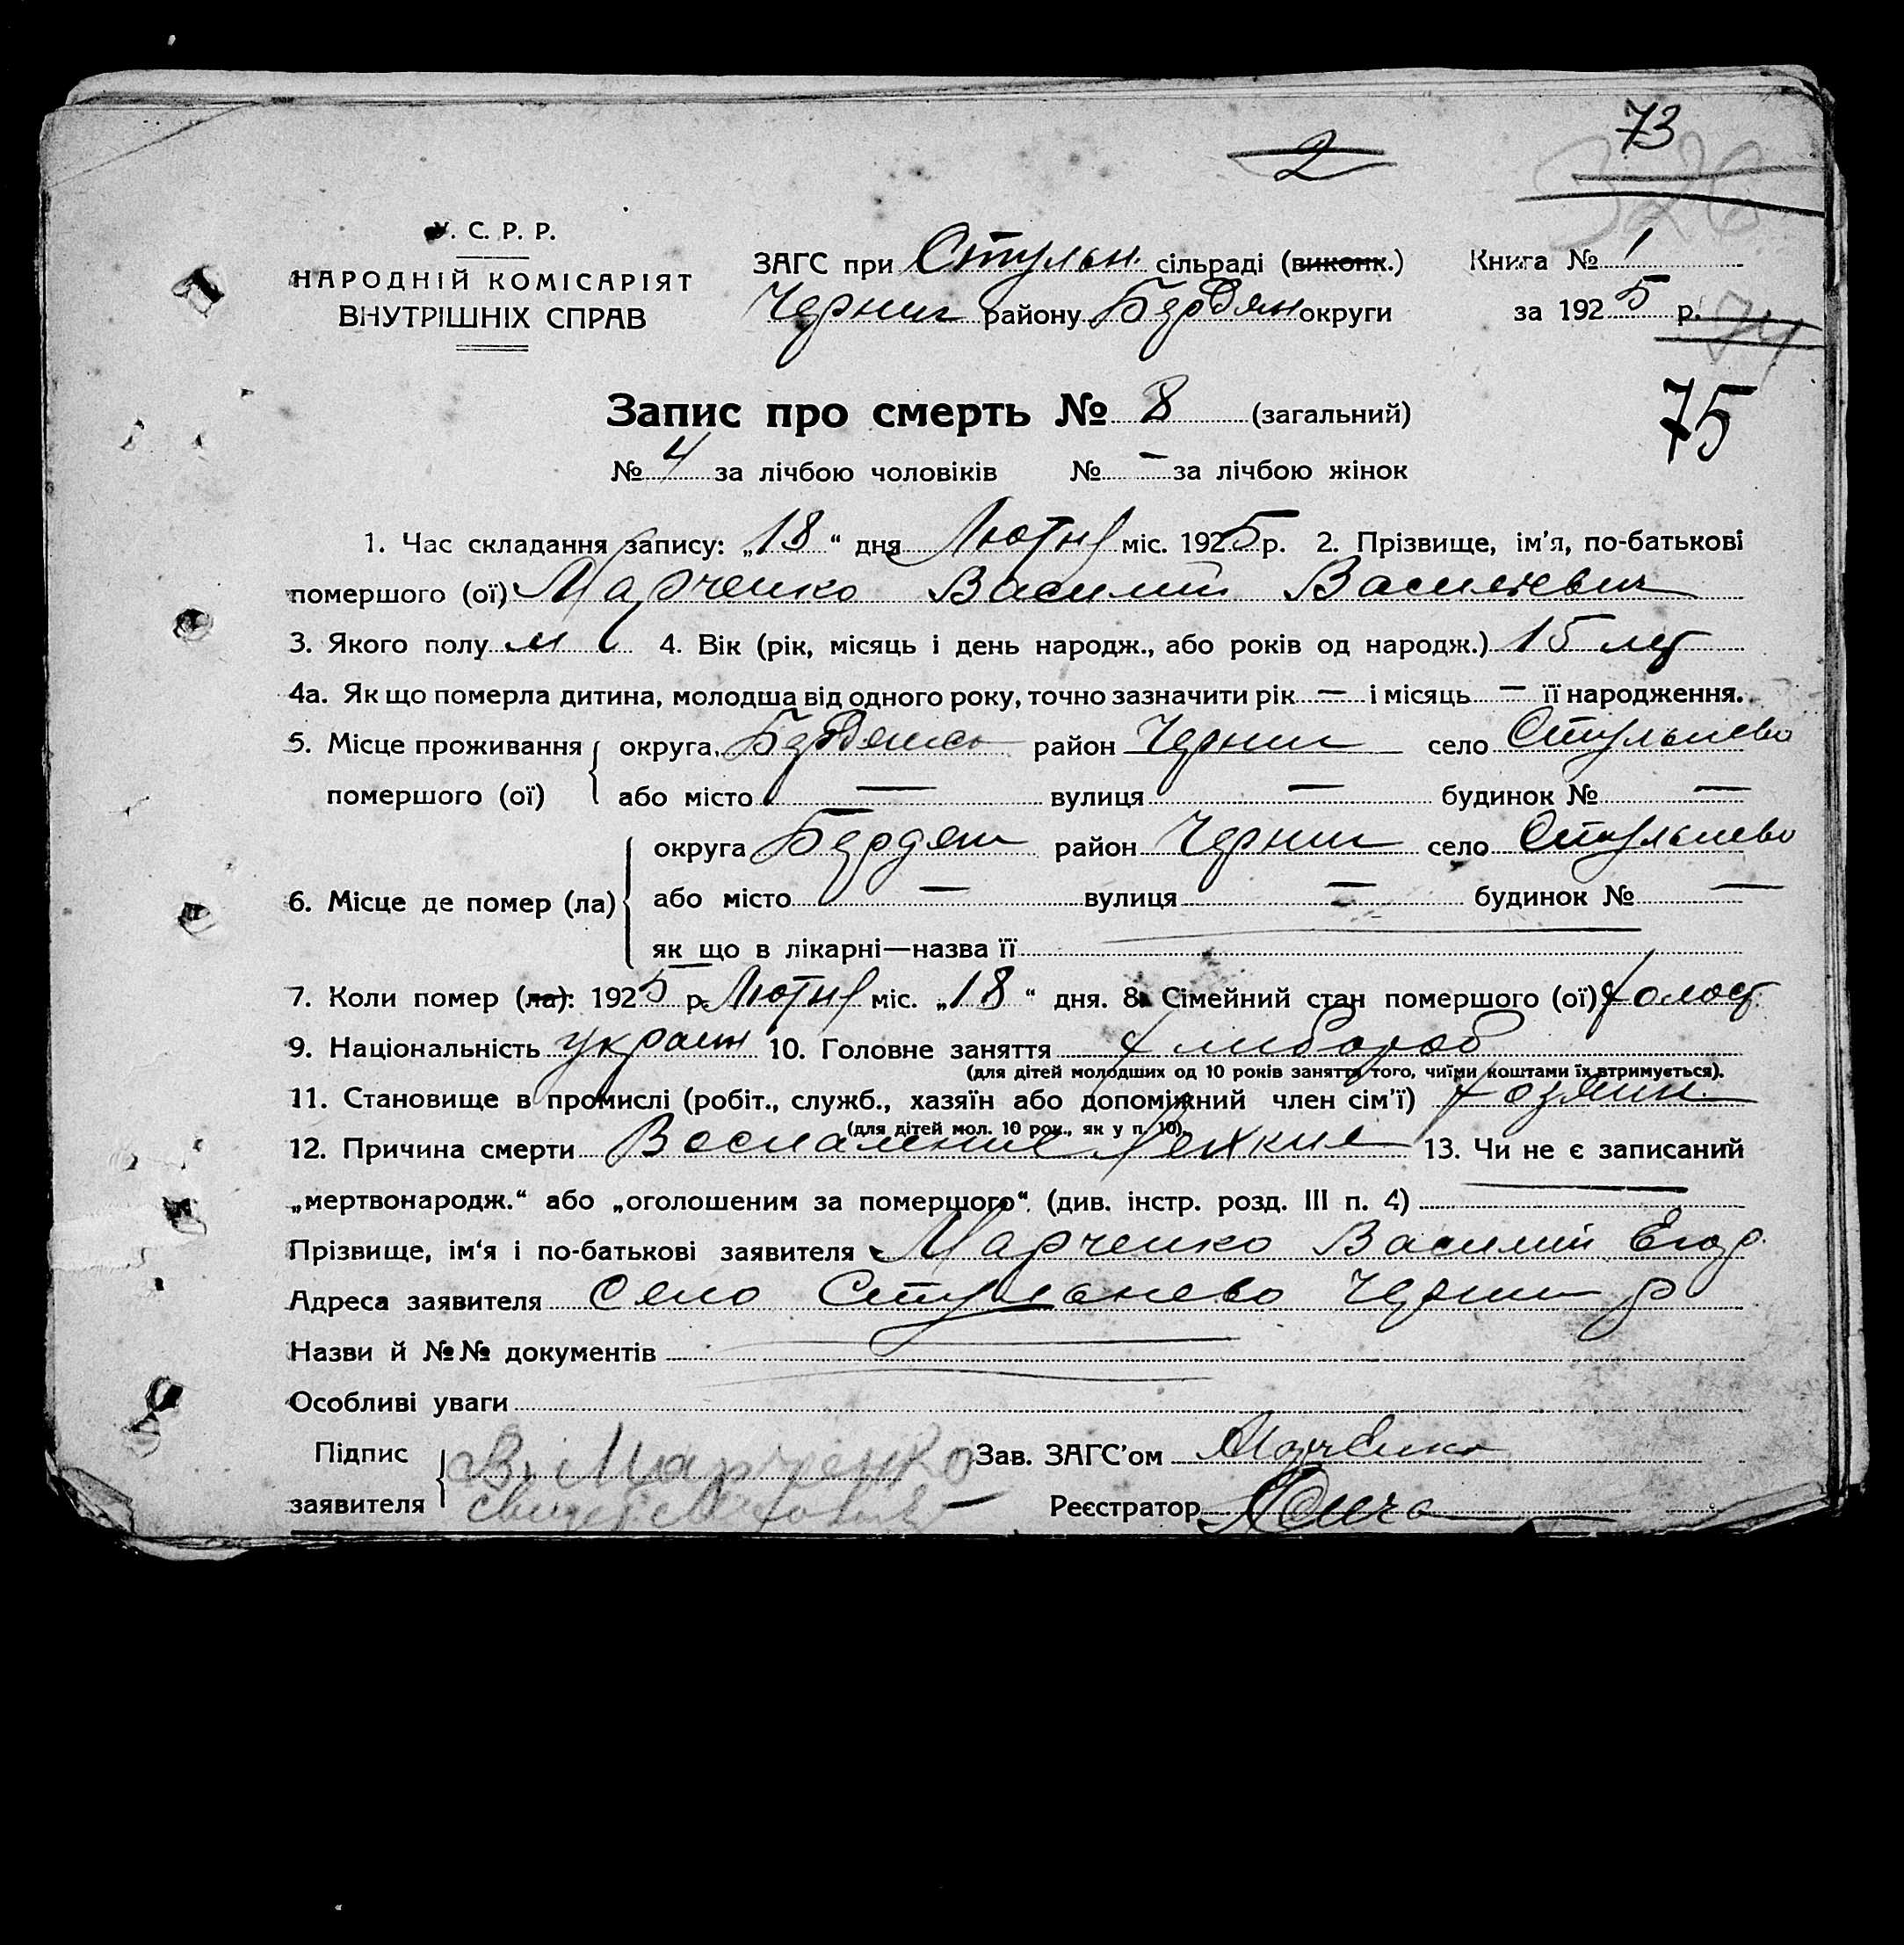 73
2
326
У. С. Р. Р.
НАРОДНІЙ КОМІСАРІЯТ
ВНУТРІШНІХ СПРАВ
ЗАГС при Стульн. сільраді (виконк.) Книга № 1
Черниг району Бердян округи за 1925 р. 74
Запис про смерть № 8 (загальний) 75
№ 4 за лічбою чоловіків № — за лічбою жінок
1. Час складання запису: „18“ дня Лютня міс. 1925 р. 2. Прізвище, ім’я, по-батькові
помершого (ої) Марченко Василий Василевич
3. Якого полу м 4. Вік (рік, місяць і день народж., або років од народж.) 15 лет
4а. Як що померла дитина, молодша від одного року, точно зазначити рік — і місяць — її народження.
5. Місце проживання округа Бердянсь район Черниг село Стульнево
помершого (ої) або місто — вулиця — будинок № —
округа Бердян район Черниг село Стульнево
6. Місце де помер (ла) або місто — вулиця — будинок № —
як що в лікарні—назва її
7. Коли помер (ла): 1925 р. Лютня міс. „18“ дня. 8. Сімейний стан помершого (ої) холост
9. Національність украин 10. Головне заняття хлибороб
(для дітей молодших од 10 років заняття того, чиїми коштами їх втримується).
11. Становище в промислі (робіт., служб., хазяїн або допоміжний член сім’ї) хозяин.
(для дітей мол. 10 рок., як у п. 10).
12. Причина смерти Воспаление Лехкие 13. Чи не є записаний
„мертвонародж.“ або „оголошеним за померщого“. (див. інстр. розд. III п. 4) —
Прізвище, ім‘я і по-батькові заявителя Марченко Василий Егор.
Адреса заявителя село Стульнево Черниг р
Назви й №№ документів
Особливі уваги
Підпис В. Марченко Зав. ЗАГС’ом Марченко
заявителя Реєстратор